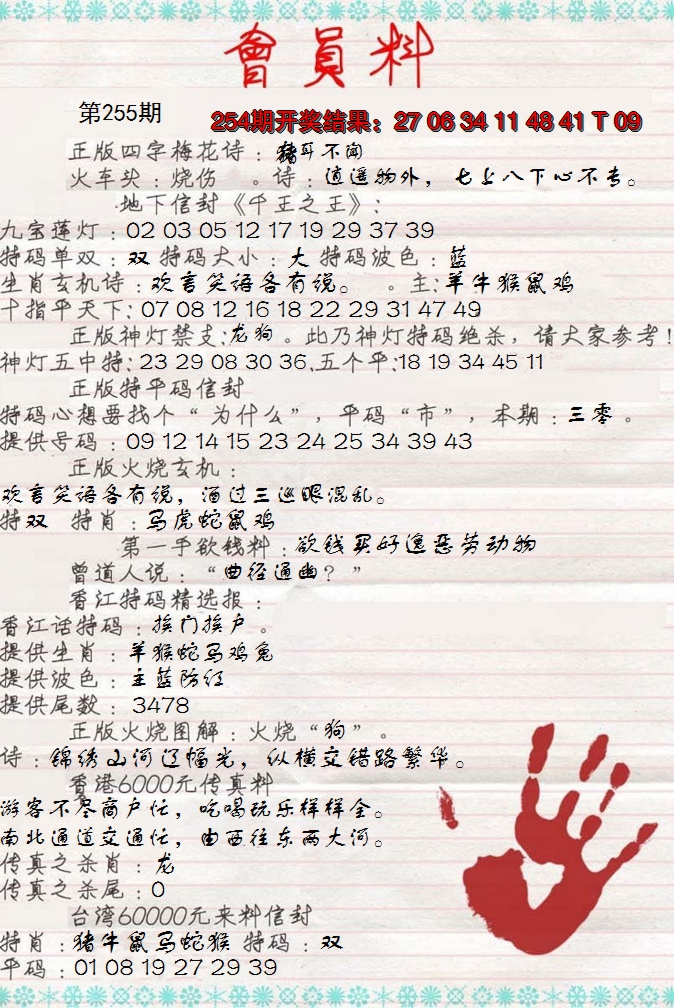 會員料
第255期
254期开奖结果：27 06 34 11 48 41 T 09
正版四字梅花诗：猪耳不闻
火车头：烧伤　。诗：逍遥物外，七上八下心不专。
地下信封《千王之王》：
九宝莲灯：02 03 05 12 17 19 29 37 39
特码单双：双 特码大小：大 特码波色：蓝
生肖玄机诗：欢言笑语各有说。　。主:羊牛猴鼠鸡
十指平天下: 07 08 12 16 18 22 29 31 47 49
正版神灯禁支:龙狗。此乃神灯特码绝杀，请大家参考!
神灯五中特:23 29 08 30 36.五个平:18 19 34 45 11
正版特平码信封
特码心想要找个“为什么”，平码“市”，本期：三零。
提供号码：09 12 14 15 23 24 25 34 39 43
正版火烧玄机：
欢言笑语各有说，酒过三巡眼混乱。
特双　特肖：马虎蛇鼠鸡
第一手欲钱料：欲钱买好逸恶劳动物
曾道人说：“曲径通幽？”
香江特码精选报：
香江话特码：挨门挨户。
提供生肖：羊猴蛇马鸡兔
提供波色：主蓝防红
提供尾数：3478
正版火烧图解：火烧“狗”。
诗：锦绣山河辽幅光，纵横交错路繁华。
香港6000元传真料
游客不尽商户忙，吃喝玩乐样样全。
南北通道交通忙，由西往东两大河。
传真之杀肖：龙
传真之杀尾：0
台湾60000元来料信封
特肖：猪牛鼠马蛇猴 特码：双
平码：01 08 19 27 29 39